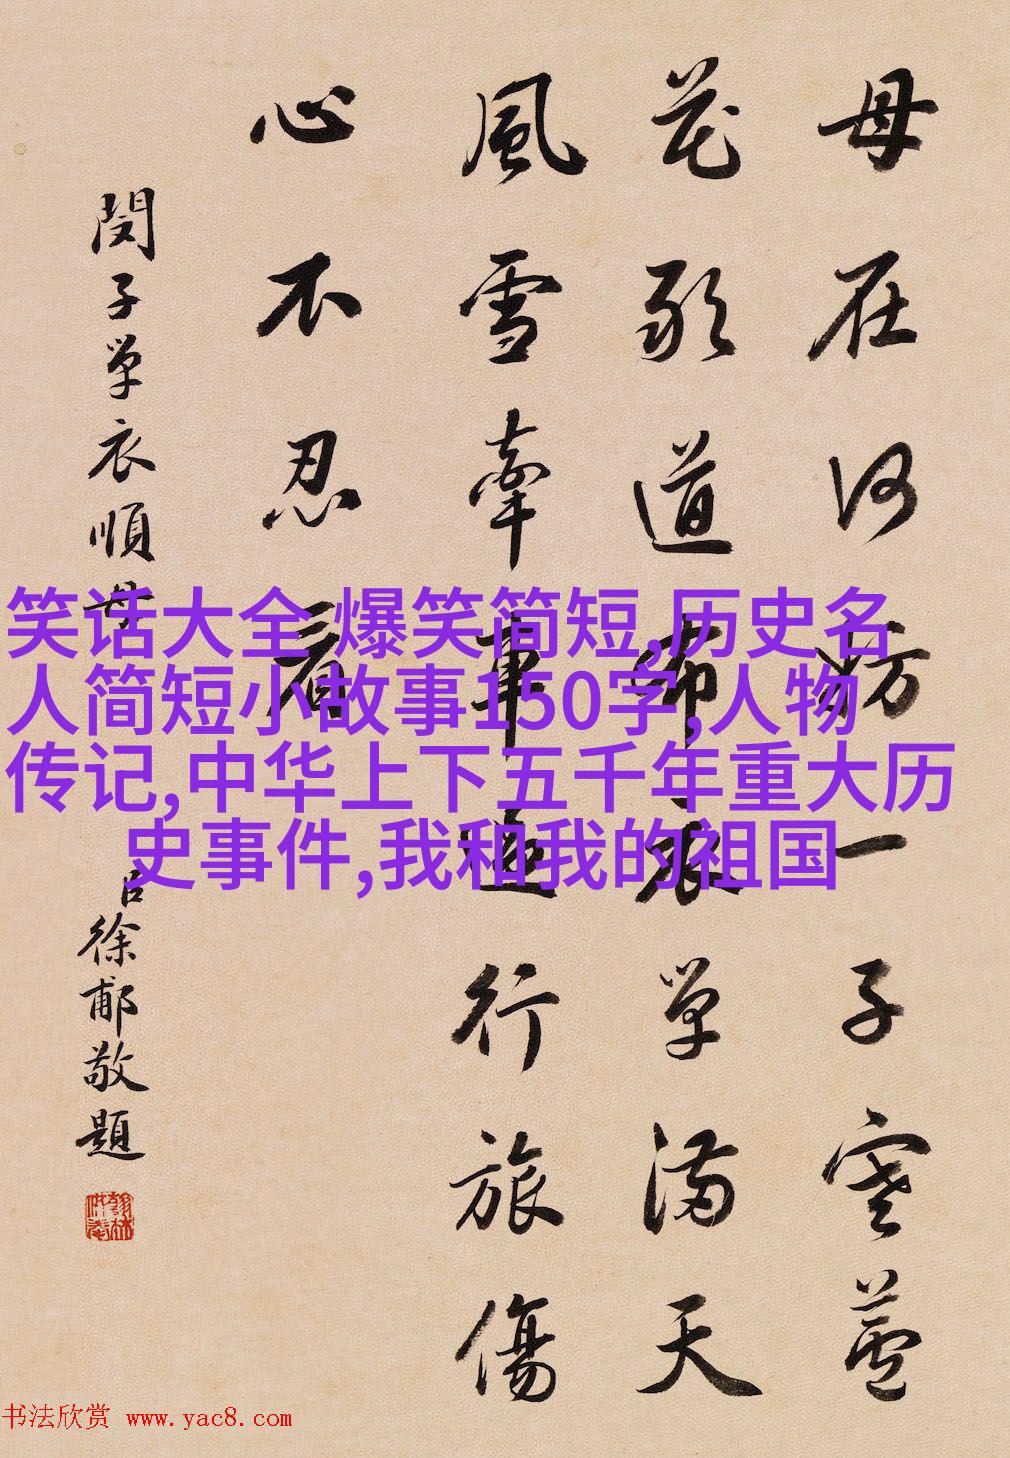 母在何妨一子寒蘆
花敢道布衣單滿天
風雪牽車行旅傷
心不忍看
閔子單衣順母
臣徐郙敬題
翰林供奉
笑话大全 爆笑简短,历史名
人简短小故事150字,人物
传记,中华上下五千年重大历
史事件,我和我的祖国
书法欣赏 www.yac8.com